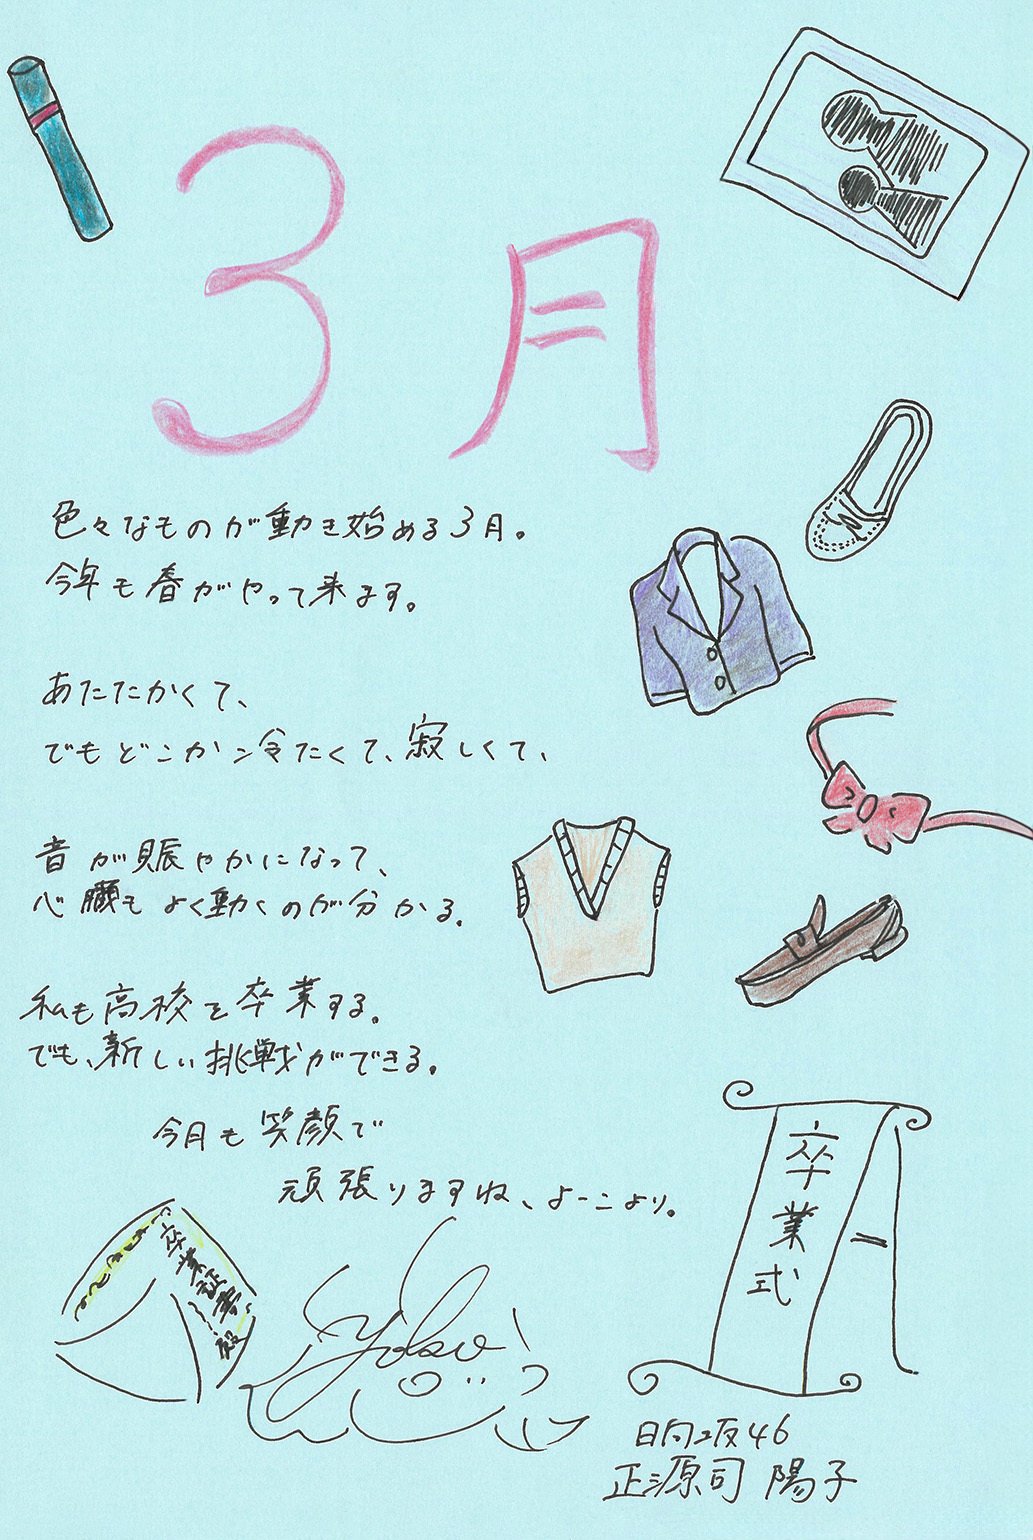 3月
色々なものが動き始める3月。
今年も春がやって来ます。
あたたかくて、
でもどこか冷たくて、寂しくて、
音が賑やかになって、
心臓もよく動くのが分かる。
私も高校を卒業する。
でも、新しい挑戦ができる。
今月も笑顔で
頑張りますね、よーこより。
卒業証書
卒業式
Yoko
日向坂46
正源司 陽子